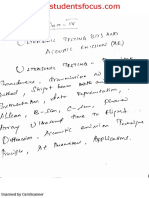 studentsfocus.com
Unit - IV
Ultrasonic Testing (UT) and
Acoustic Emission (AE)
Ultrasonic Testing -
Transducers, transmission
method, straight beam
Instrumentation, data representation,
A-Scan, B-scan, C-scan, phased
Array Ultrasound time of Flight
Diffraction, Acoustic Emission Technique
Principle, AE Parameters, Applications.
Scanned by CamScanner